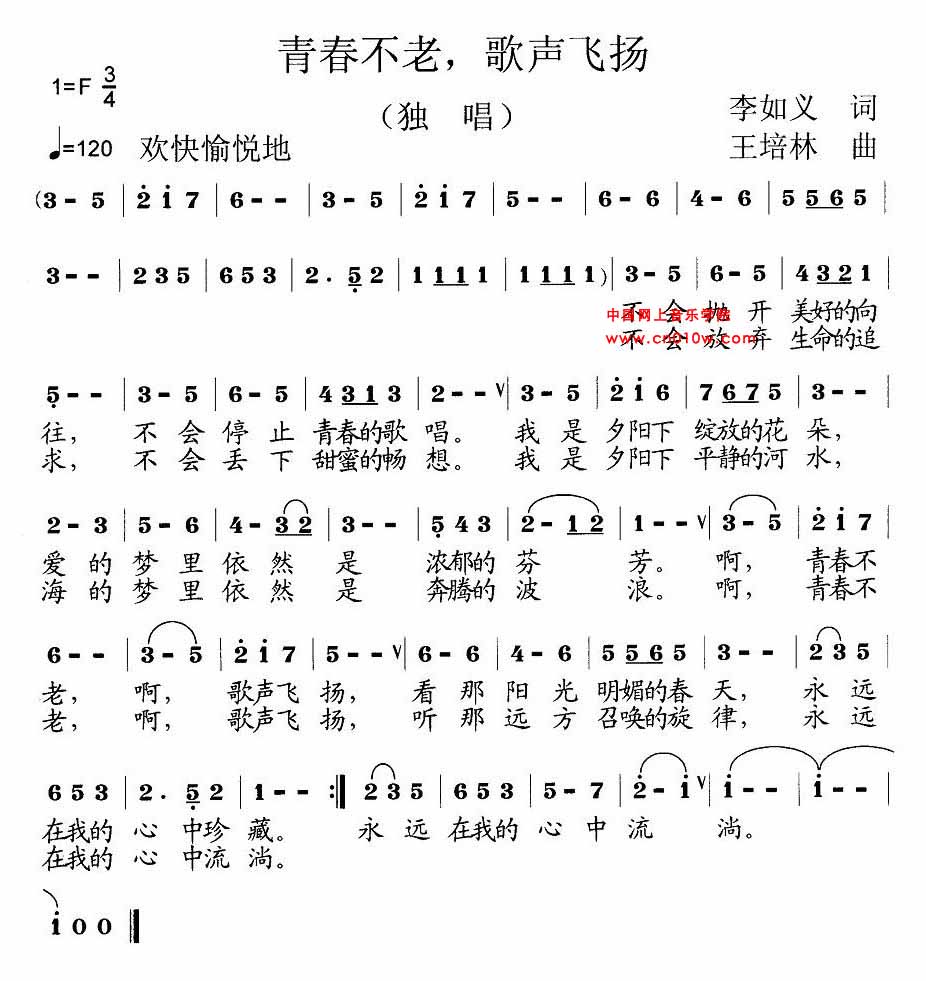 青春不老，歌声飞扬
1=F 3/4
（独 唱）
李如义 词
♩=120 欢快愉悦地
王培林 曲
(3 - 5 | 2̇ 1̇ 7 | 6 - - | 3 - 5 | 2̇ 1̇ 7 | 5 - - | 6 - 6 | 4 - 6 | 5 5 6 5 |
3 - - | 2 3 5 | 6 5 3 | 2. 5̣ 2 | 1 1 1 1 | 1 1 1 1) | 3 - 5 | 6 - 5 | 4 3 2 1 |
不 会 抛 开 美好的向
中国网上音乐学院
不 会 放 弃 生命的追
www.cn010w.com
5̣ - - | 3 - 5 | 6 - 5 | 4 3 1 3 | 2 - - ∨ | 3 - 5 | 2̇ 1̇ 6 | 7 6 7 5 | 3 - - |
往， 不 会 停 止 青春的歌 唱。 我 是 夕阳下 绽放的花 朵，
求， 不 会 丢 下 甜蜜的畅 想。 我 是 夕阳下 平静的河 水，
2 - 3 | 5 - 6 | 4 - 3 2 | 3 - - | 5̣ 4 3 | 2 - 1 2 | 1 - - ∨ | 3 - 5 | 2̇ 1̇ 7 |
爱 的 梦 里 依 然 是 浓郁的 芬 芳。 啊， 青春不
海 的 梦 里 依 然 是 奔腾的 波 浪。 啊， 青春不
6 - - | 3 - 5 | 2̇ 1̇ 7 | 5 - - ∨ | 6 - 6 | 4 - 6 | 5 5 6 5 | 3 - - | 2 3 5 |
老， 啊， 歌声飞 扬， 看 那 阳 光 明媚的春 天， 永 远
老， 啊， 歌声飞 扬， 听 那 远 方 召唤的旋 律， 永 远
6 5 3 | 2. 5̣ 2 | 1 - - :‖ 2 3 5 | 6 5 3 | 5 - 7 | 2̇ - 1̇ ∨ | 1̇ - - | 1̇ - - |
在我的 心 中珍 藏。 永 远 在我的 心 中 流 淌。
在我的 心 中流 淌。
1̇ 0 0 ‖